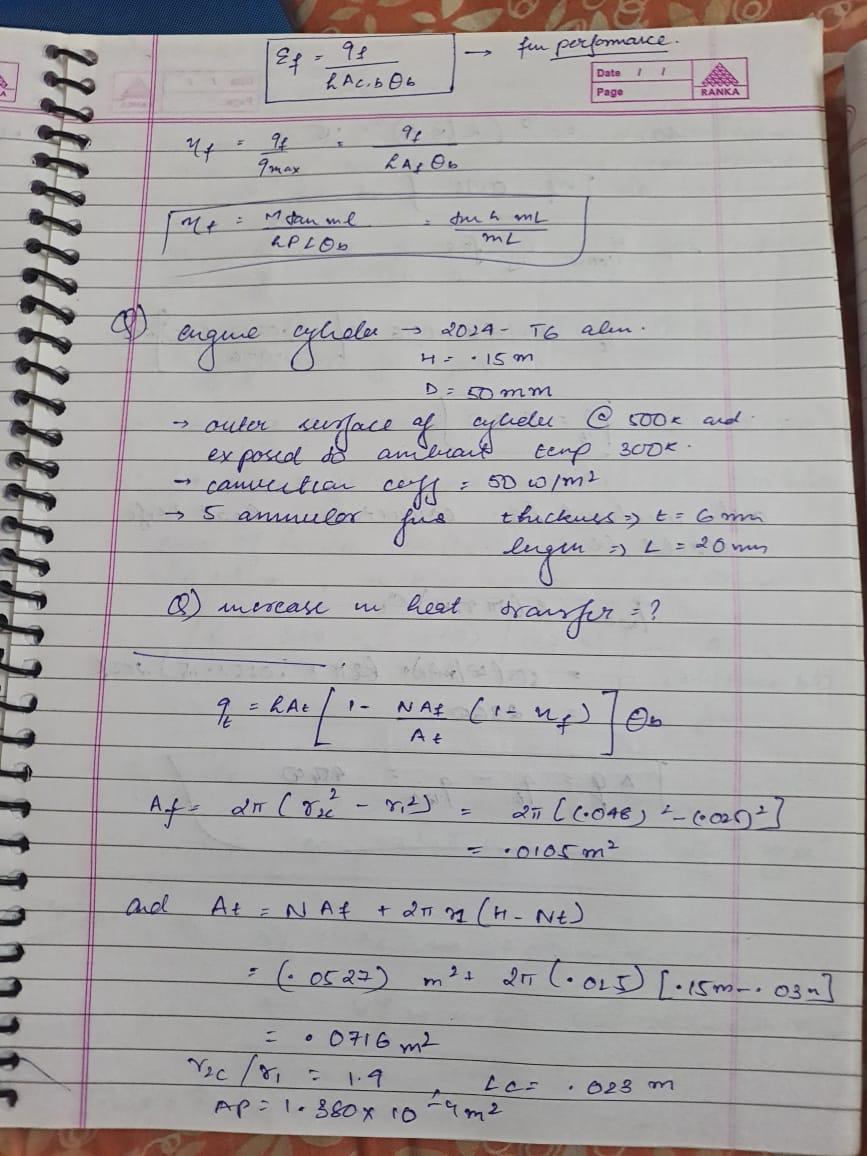 Ɛf = qf / hAc,bθb → fin performance.
Date / /
Page
RANKA
ηf = qf / qmax = qf / hAfθb
ηf = M tan ml / hPLθb = tan h mL / mL
Q) engine cylinder → 2024 - T6 alum.
H = .15m
D = 50mm
→ outer surface of cylinder @ 500K and
exposed to ambient temp 300K.
→ convection coeff = 50 w/m²
→ 5 annular fins thickness ⇒ t = 6mm
length ⇒ L = 20mm
Q) increase in heat transfer = ?
qt = hAt [ 1 - NAf / At (1 - ηf) ] θb
Af = 2π (r2c² - r1²) = 2π [(.048)² - (.025)²]
= .0105m²
and At = NAf + 2π r1 (H - Nt)
= (.0527) m² + 2π (.025) [.15m - .03m]
= .0716m²
r2c / r1 = 1.9 , Lc = .023 m
AP = 1.380 x 10⁻⁴m²